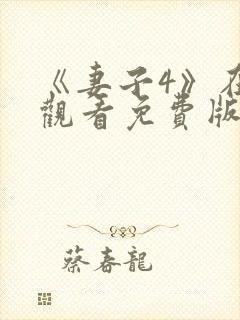 《妻子4》在
觀看免費版
蔡春龍